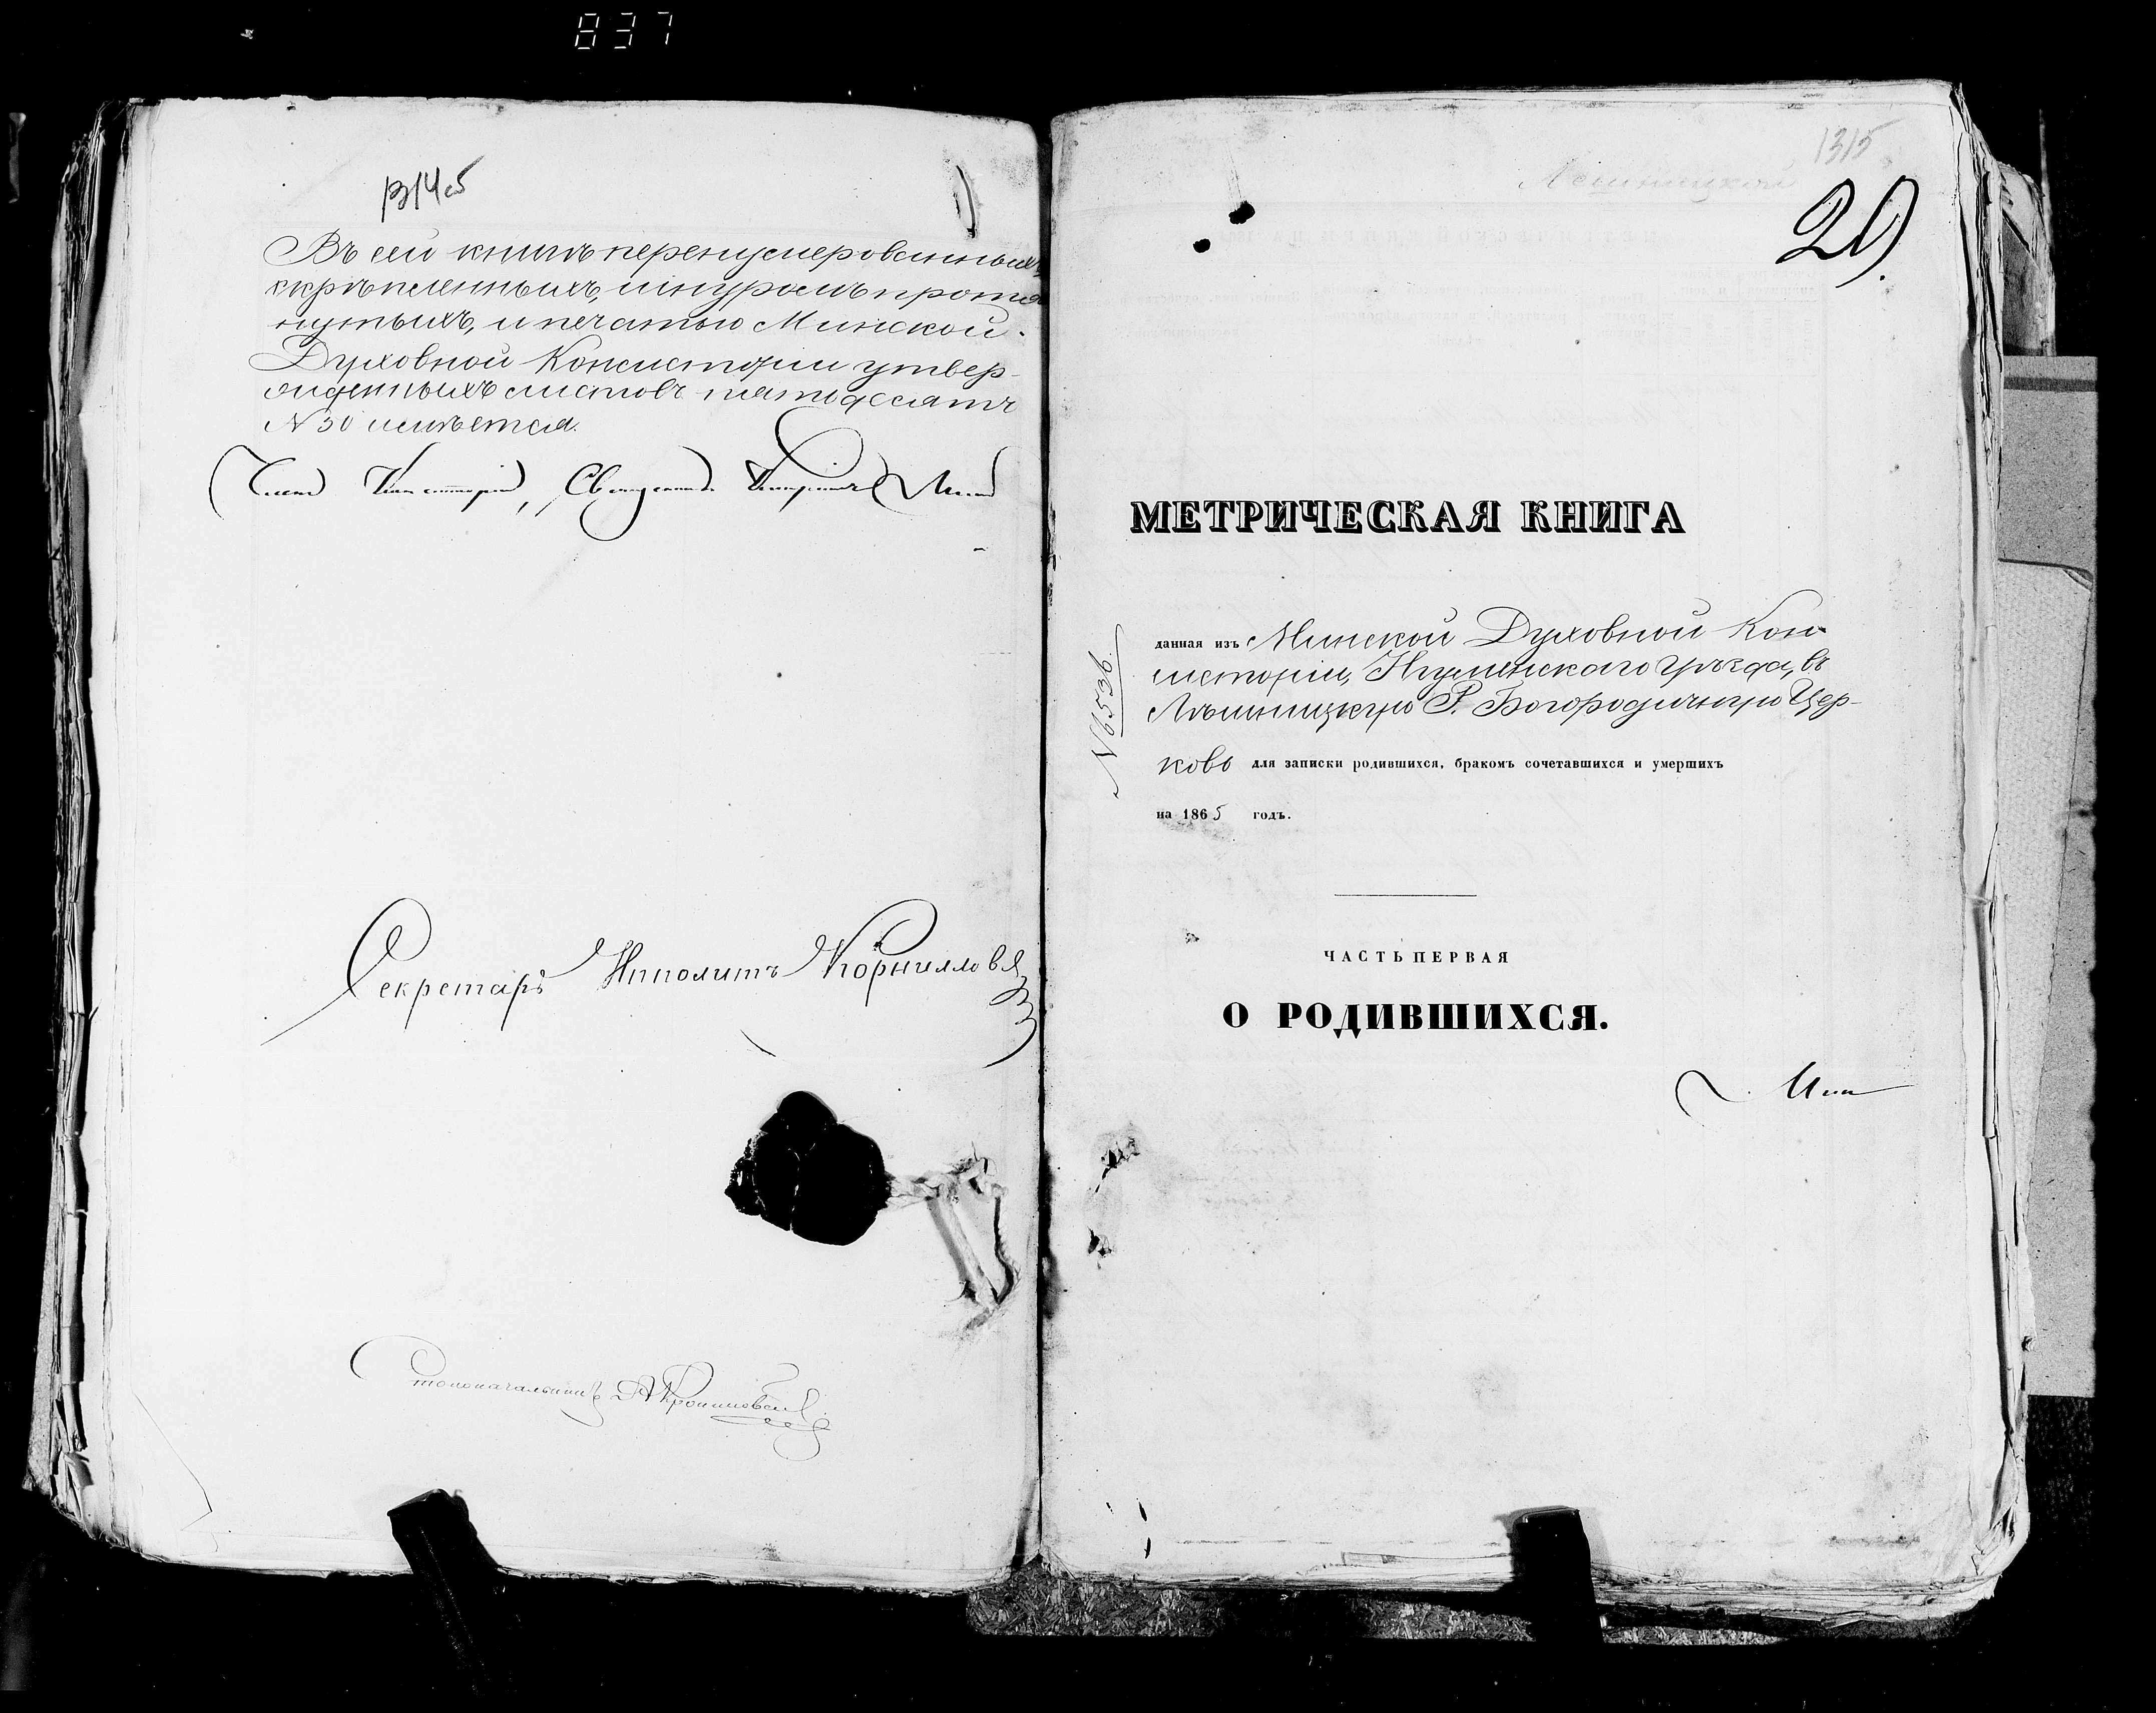 837
1314об
Въ сей книгѣ перенумерованныхъ,
скрѣпленныхъ, шнуромъ протя
нутыхъ, и печатью Минской
Духовной Консисторіи утвер-
жденныхъ листовъ пятьдесятъ
№ 50 имѣется.
Членъ Консисторіи, Священникъ
Секретарь Ипполитъ Корниловъ
Столоначальникъ
1315
Лешницкой
29.
МЕТРИЧЕСКАЯ КНИГА
№ 6536.
данная изъ Минской Духовной Кон-
систоріи, Игуменскаго Уѣзда, въ
Лѣшницкую Р. Богородичную Цер-
ковь для записки родившихся, бракомъ сочетавшихся и умершихъ
на 1865 годъ.
ЧАСТЬ ПЕРВАЯ
О РОДИВШИХСЯ.